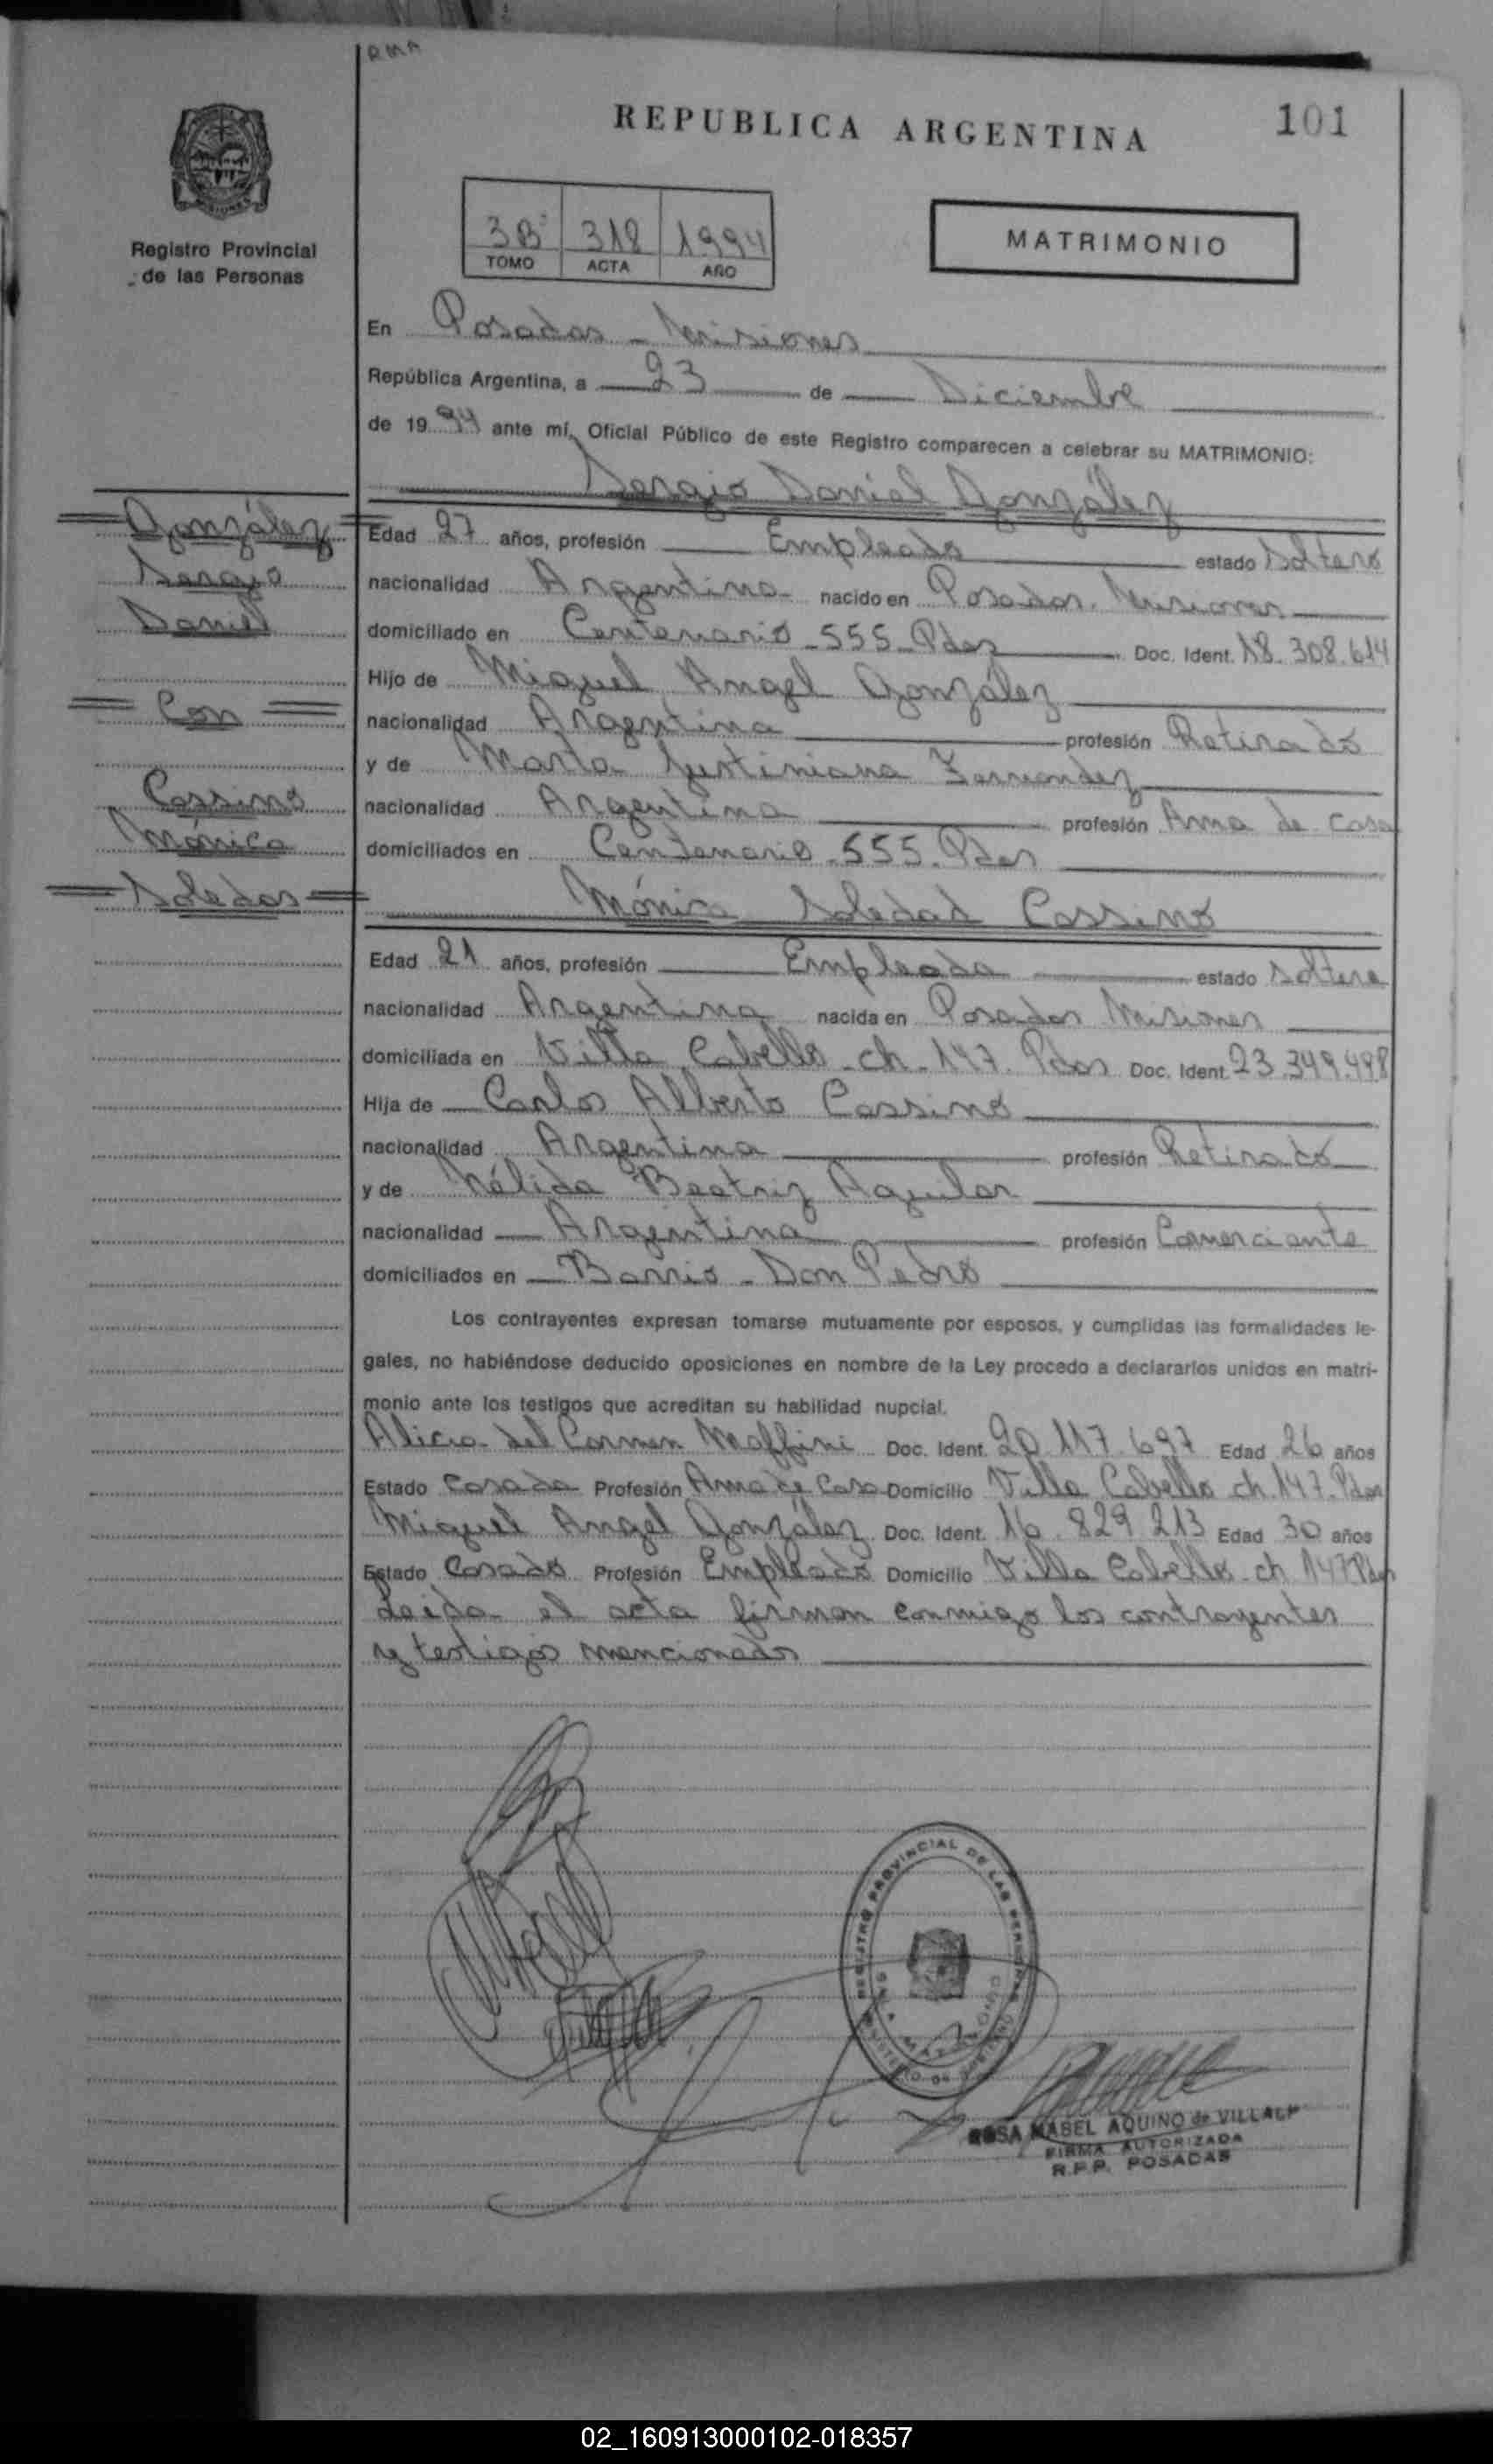 RMA
REPUBLICA ARGENTINA
101
Registro Provincial
de las Personas
3B 318 1994
TOMO ACTA AÑO
MATRIMONIO
En Posadas - Misiones
República Argentina, a 23 de Diciembre
de 1994 ante mí, Oficial Público de este Registro comparecen a celebrar su MATRIMONIO:
Sergio Daniel González
González
Sergio
Daniel
Con
Cassino
Mónica
Soledad
Edad 27 años, profesión Empleado estado Soltero
nacionalidad Argentina nacido en Posadas. Misiones
domiciliado en Centenario - 555 - Pdas Doc. Ident. 18.308.614
Hijo de Miguel Angel González
nacionalidad Argentina profesión Retirado
y de Marta Justiniana Fernandez
nacionalidad Argentina profesión Ama de casa
domiciliados en Centenario - 555. Pdas
Mónica Soledad Cassino
Edad 21 años, profesión Empleada estado Soltera
nacionalidad Argentina nacida en Posadas Misiones
domiciliada en Villa Cabello - ch - 147. Pdas Doc. Ident. 23.349.498
Hija de Carlos Alberto Cassino
nacionalidad Argentina profesión Retirado
y de Nélida Beatriz Aguilar
nacionalidad Argentina profesión Comerciante
domiciliados en Barrio - Don Pedro
Los contrayentes expresan tomarse mutuamente por esposos, y cumplidas las formalidades le-
gales, no habiéndose deducido oposiciones en nombre de la Ley procedo a declararlos unidos en matri-
monio ante los testigos que acreditan su habilidad nupcial.
Alicia del Carmen Maffini Doc. Ident. 20.117.697 Edad 26 años
Estado Casada Profesión Ama de Casa Domicilio Villa Cabello ch 147. Pdas
Miguel Angel González Doc. Ident. 16.829.213 Edad 30 años
Estado Casado Profesión Empleado Domicilio Villa Cabello - ch 147 Pdas
Leida el acta firman conmigo los contrayentes
y testigos mencionados
REGISTRO PROVINCIAL DE LAS PERSONAS
MINISTERIO DE GOBIERNO
ROSA MABEL AQUINO de VILLALP
FIRMA AUTORIZADA
R.P.P. POSADAS
02_160913000102-018357